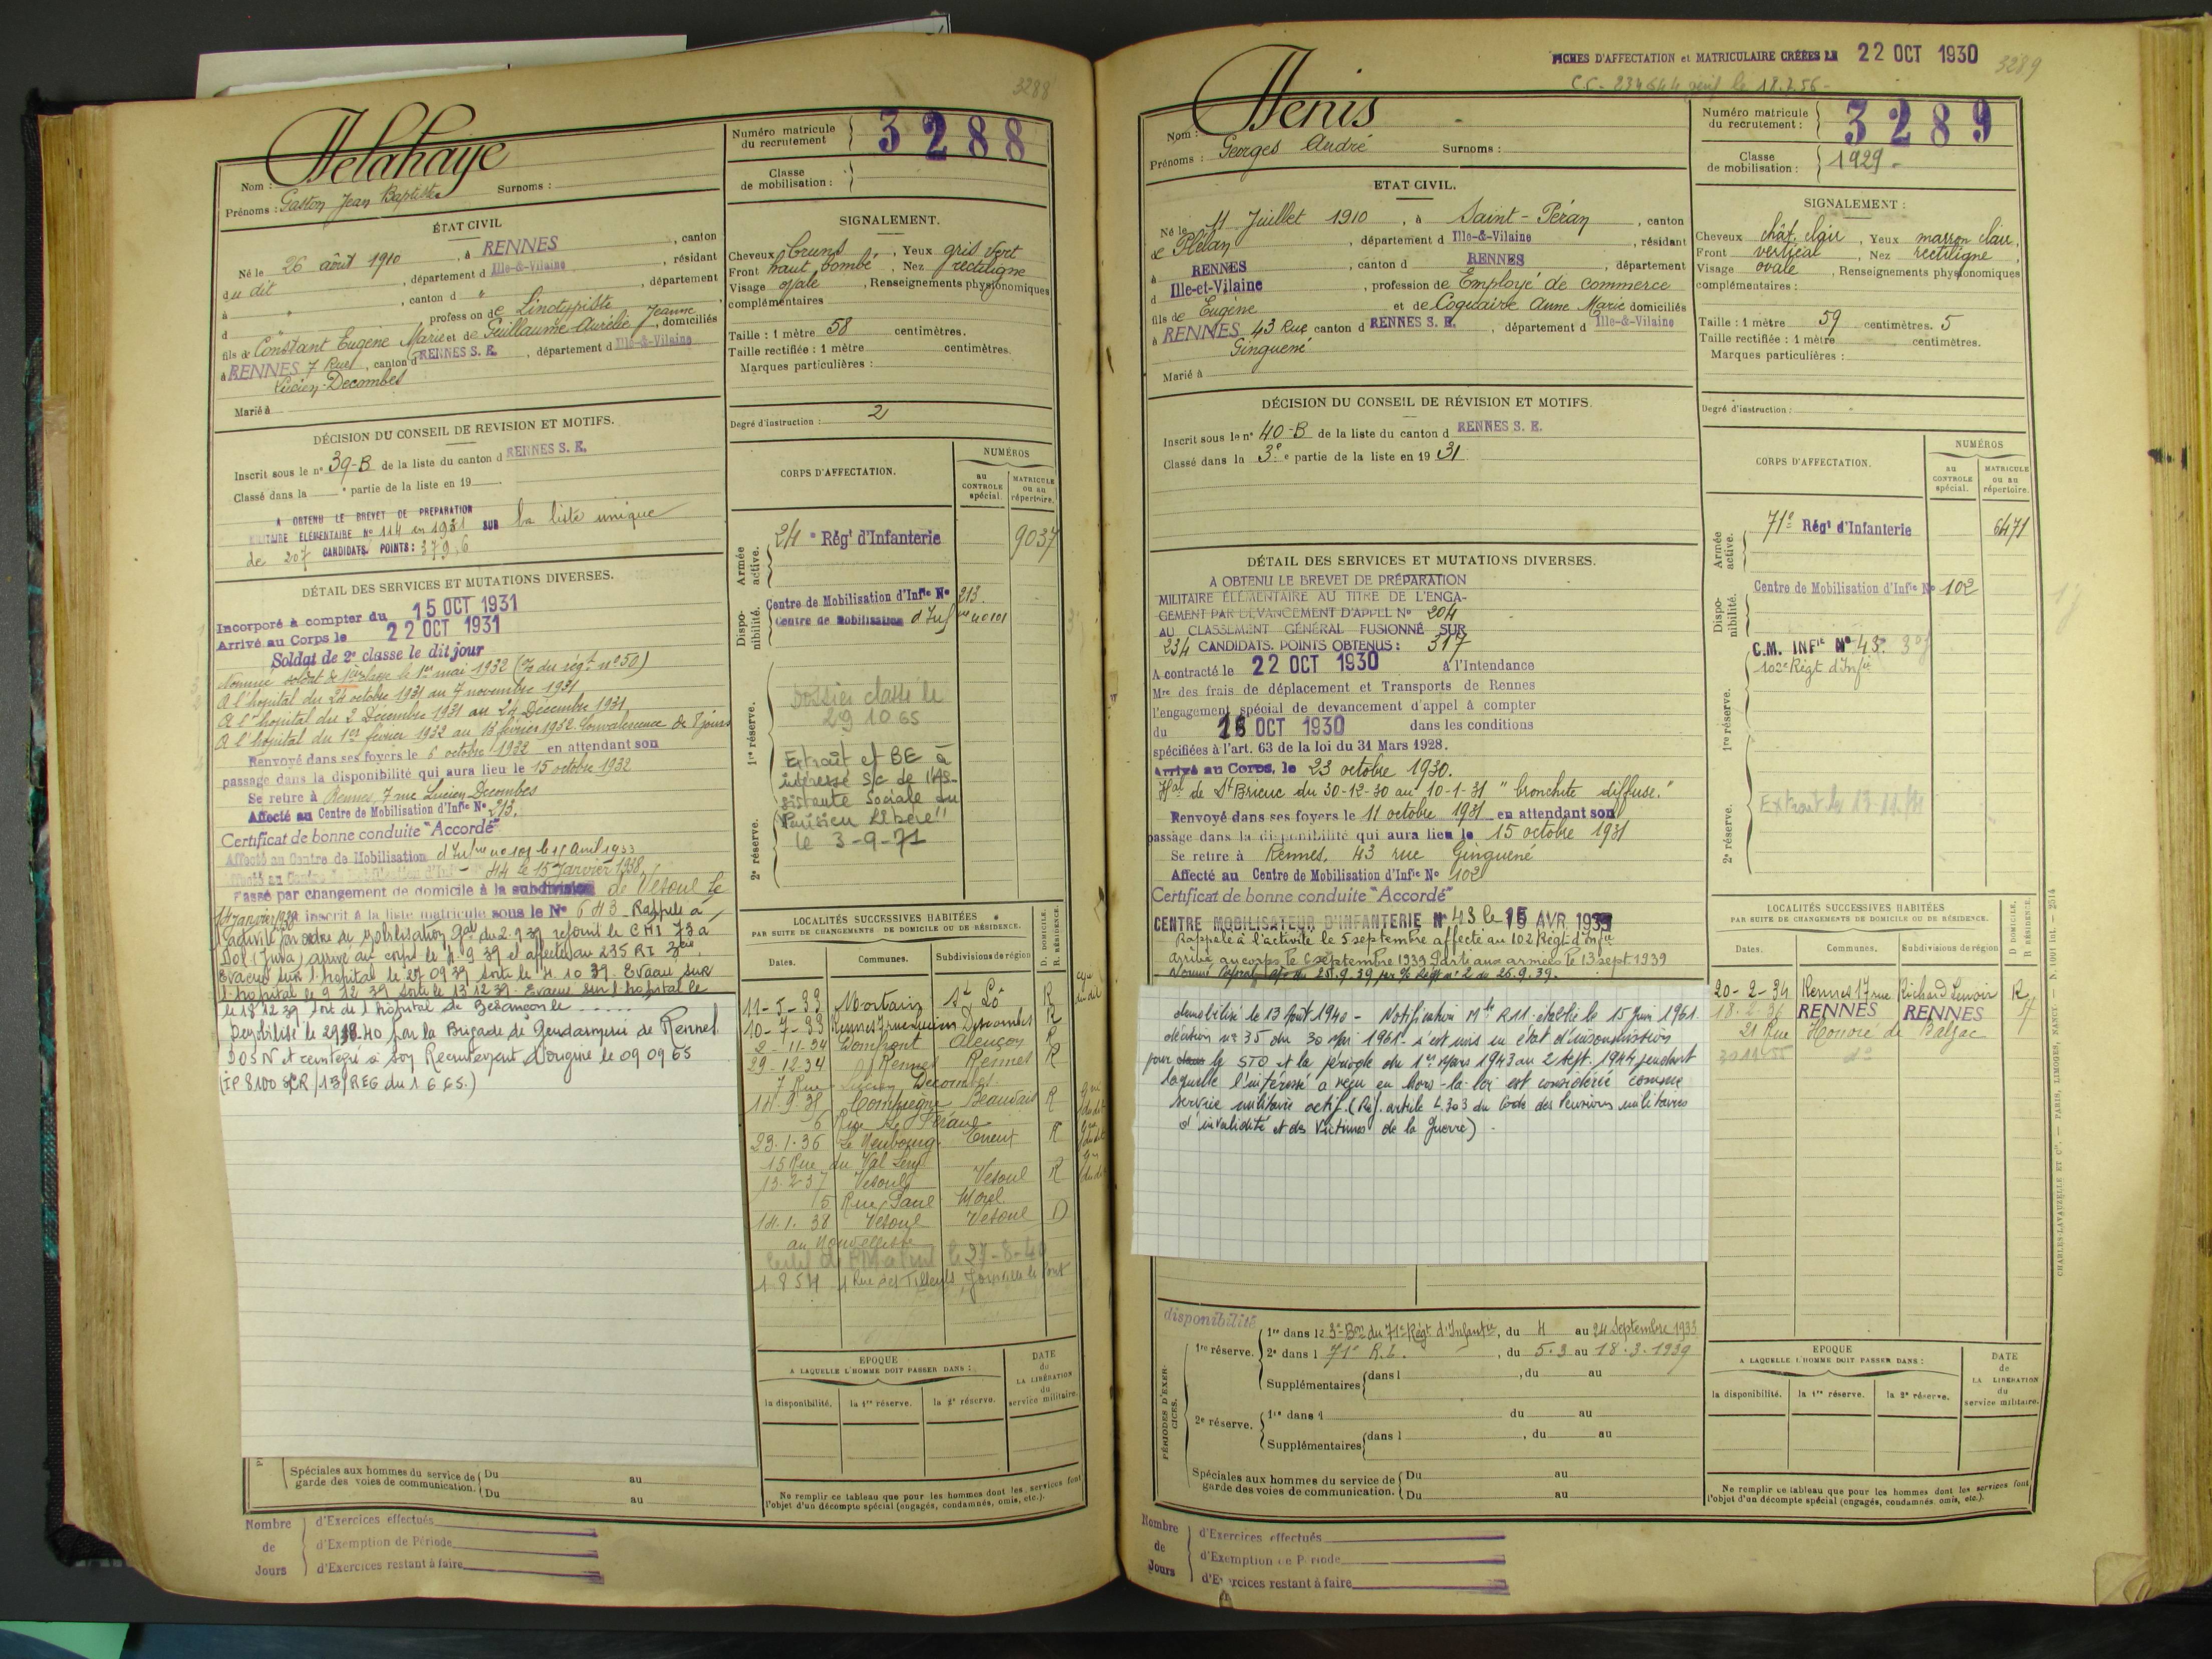 3288
Nom : Delahaye
Prénoms : Gaston Jean Baptiste Surnoms :
Numéro matricule du recrutement 3288
Classe de mobilisation :
ÉTAT CIVIL
Né le 26 août 1910, à RENNES, canton
du dit, département d Ille-&-Vilaine, résidant
à ", canton d ", département
d ", profession de Linotypiste
fils de Constant Eugène Marie et de Guillaume Aurélie Jeanne, domiciliés
à RENNES 7 Rue, canton d RENNES S. E., département d Ille-&-Vilaine
Lucien-Decombes
Marié à
SIGNALEMENT.
Cheveux bruns, Yeux gris vert
Front haut, bombé, Nez rectiligne
Visage ovale, Renseignements physionomiques
complémentaires
Taille : 1 mètre 58 centimètres.
Taille rectifiée : 1 mètre centimètres.
Marques particulières :
Degré d'instruction : 2
DÉCISION DU CONSEIL DE REVISION ET MOTIFS.
Inscrit sous le n° 39-B de la liste du canton d RENNES S. E.
Classé dans la ° partie de la liste en 19
A OBTENU LE BREVET DE PREPARATION
MILITAIRE ELEMENTAIRE N° 114 en 1931 SUR la liste unique
de 207 CANDIDATS. POINTS : 379,6
DÉTAIL DES SERVICES ET MUTATIONS DIVERSES.
Incorporé à compter du 15 OCT 1931
Arrivé au Corps le 22 OCT 1931
Soldat de 2e classe le dit jour
Nommé soldat de 1ère classe le 1er mai 1932 (% du régt n° 50)
A l'hopital du 24 octobre 1931 au 7 novembre 1931
A l'hopital du 2 Décembre 1931 au 24 Décembre 1931
A l'hopital du 1er février 1932 au 13 février 1932. Convalescence de 8 jours
Renvoyé dans ses foyers le 6 octobre 1932 en attendant son
passage dans la disponibilité qui aura lieu le 15 octobre 1932
Se retire à Rennes, 7 rue Lucien Decombes
Affecté au Centre de Mobilisation d'Infie N° 213.
Certificat de bonne conduite "Accordé"
Affecté au Centre de Mobilisation d'Infrie no 101 le 15 Avril 1933
Affecté au Centre de Mobilisation d'Inf 44 le 15 Janvier 1938
Passé par changement de domicile à la subdivision de Vesoul le
14 Janvier 1938 inscrit à la liste matricule sous le N° 643 Rappelé à
l'activité par ordre de mobilisation Gal du 2.9.39 rejoint le CMI 73 à
Dol (Jura) arrivé au corps le 4.9.39 et affecté au 235 RI
Evacué sur l'hopital le 27 09 39 sorti le 4.10 39. Evacué sur
l'hopital le 9 12 39 sorti le 13 12 39. Evacué sur l'hopital le
le 18 12 39 sort de l'hôpital de Besançon le ......
Demobilisé le 29 40 par la Brigade de Gendarmerie de Rennes
DOSN et réintegré à son Recrutement d'origine le 09 09 65
(IP 8100 SCR /13/REG du 1 6 65.)
CORPS D'AFFECTATION.
NUMÉROS
au CONTROLE spécial.
MATRICULE ou au répertoire.
Armée active. 24e Régt d'Infanterie 9037
Disponibilité. Centre de Mobilisation d'Infie N° 213.
Centre de Mobilisation d'Infrie no 101
1re réserve.
Dossier classé le
29 10 65
Extrait et BE à
intéressé s/c de l'As-
sistante Sociale du
"Parisien Libéré"
le 3-9-71
2e réserve.
LOCALITÉS SUCCESSIVES HABITÉES
PAR SUITE DE CHANGEMENTS DE DOMICILE OU DE RÉSIDENCE.
D. DOMICILE. R. RÉSIDENCE.
Dates. Communes. Subdivisions de région
11-5-33 Mortain St Lô R
10-7-33 Rennes 7 rue Lucien Decombes R
2-11-34 Domfront Alençon R
29-12-34 Rennes Rennes R
7 Rue Lucien Decombes
14.9.35 Compiègne Beauvais R
6 Rue
23.1.36 Le Neubourg Evreux R
15 Rue du Val
13-2-37 Vesoul Vesoul R
15 Rue Paul Morel
14.1.38 Vesoul Vesoul D
au Nouvelliste
le 27-8-40
1.8 54 4 Rue des Tilleuls, Joinville le Pont
EPOQUE
A LAQUELLE L'HOMME DOIT PASSER DANS :
la disponibilité. la 1re réserve. la 2e réserve.
DATE de LA LIBÉRATION du service militaire.
Spéciales aux hommes du service de garde des voies de communication. Du au
Du au
Ne remplir ce tableau que pour les hommes dont les services font
l'objet d'un décompte spécial (engagés, condamnés, omis, etc.).
Nombre de Jours
d'Exercices effectués
d'Exemption de Période
d'Exercices restant à faire
FICHES D'AFFECTATION et MATRICULAIRE CRÉÉES LE 22 OCT 1930
3289
C.C. 234544 le 18.2.56
Nom : Denis
Prénoms : Georges André Surnoms :
Numéro matricule du recrutement : 3289
Classe de mobilisation : 1929
ETAT CIVIL.
Né le 11 Juillet 1910, à Saint-Péran, canton
de Plélan, département d Ille-&-Vilaine, résidant
à RENNES, canton d RENNES, département
d Ille-et-Vilaine, profession de Employé de commerce
fils de Eugène et de Coquaire Anne Marie domiciliés
à RENNES 43 Rue canton d RENNES S. E., département d Ille-&-Vilaine
Ginguené
Marié à
SIGNALEMENT :
Cheveux chât. clair, Yeux marron clair,
Front vertical, Nez rectiligne,
Visage ovale, Renseignements physionomiques
complémentaires :
Taille : 1 mètre 59 centimètres. 5
Taille rectifiée : 1 mètre centimètres.
Marques particulières :
Degré d'instruction :
DÉCISION DU CONSEIL DE RÉVISION ET MOTIFS.
Inscrit sous le n° 40-B de la liste du canton d RENNES S. E.
Classé dans la 3e partie de la liste en 19 31
DÉTAIL DES SERVICES ET MUTATIONS DIVERSES.
A OBTENU LE BREVET DE PRÉPARATION
MILITAIRE ÉLÉMENTAIRE AU TITRE DE L'ENGA-
GEMENT PAR DEVANCEMENT D'APPEL N° 204
AU CLASSEMENT GÉNÉRAL FUSIONNÉ SUR
234 CANDIDATS. POINTS OBTENUS : 317
A contracté le 22 OCT 1930 à l'Intendance
Mre des frais de déplacement et Transports de Rennes
l'engagement spécial de devancement d'appel à compter
du 15 OCT 1930 dans les conditions
spécifiées à l'art. 63 de la loi du 31 Mars 1928.
Arrivé au Corps, le 23 octobre 1930.
Hal de St Brieuc du 30-12-30 au 10-1-31 "bronchite diffuse."
Renvoyé dans ses foyers le 11 octobre 1931 en attendant son
passage dans la disponibilité qui aura lieu le 15 octobre 1931
Se retire à Rennes, 43 rue Ginguené
Affecté au Centre de Mobilisation d'Infie N° 102
Certificat de bonne conduite "Accordé"
CENTRE MOBILISATEUR D'INFANTERIE N° 43 le 15 AVR 1933
Rappelé à l'activité le 5 septembre affecté au 102 Régt d'Infie
Arrivé au corps le 6 septembre 1939 Parti aux armées le 13 sept 1939
Nommé Caporal du 25.9.39, par % Régt n° 2 du 26.9.39.
demobilisé le 13 août 1940 - Notification Mle R11 établie le 15 Juin 1961
décision n° 35 du 30 Mai 1961 s'est mis en état d'insoumission
pour le STO et la période du 1er Mars 1943 au 2 Sept. 1944 pendant
laquelle l'intéressé a vécu en hors-la-loi est considérée comme
service militaire actif. (Réf. article L.303 du Code des Pensions militaires
d'invalidité et des Victimes de la Guerre).
CORPS D'AFFECTATION.
NUMÉROS
au CONTROLE spécial.
MATRICULE ou au répertoire.
Armée active. 71e Régt d'Infanterie 6471
Disponibilité. Centre de Mobilisation d'Infie N° 102
C.M. INFie N° 43.
102e Régt d'Infie
1re réserve.
Extrait le 13-11-71
2e réserve.
LOCALITÉS SUCCESSIVES HABITÉES
PAR SUITE DE CHANGEMENTS DE DOMICILE OU DE RÉSIDENCE.
D. DOMICILE. R. RÉSIDENCE.
Dates. Communes. Subdivisions de région
20-2-34 Rennes 17 rue Richard Lenoir R
18.2.36 RENNES RENNES
21 Rue Honoré de Balzac
30 11 55 do
disponibilité
PÉRIODES D'EXERCICES.
1re réserve. 1re dans le 3e Bon du 71e Régt d'Infanterie, du 4 au 24 Septembre 1933
2e dans l 71e R.I., du 5.3 au 18.3.1939
Supplémentaires dans l, du au
2e réserve. 1re dans l du au
Supplémentaires dans l, du au
Spéciales aux hommes du service de garde des voies de communication. Du au
Du au
EPOQUE
A LAQUELLE L'HOMME DOIT PASSER DANS :
la disponibilité. la 1re réserve. la 2e réserve.
DATE de LA LIBERATION du service militaire.
Ne remplir ce tableau que pour les hommes dont les services font
l'objet d'un décompte spécial (engagés, condamnés, omis, etc.).
Nombre de Jours
d'Exercices effectués
d'Exemption de Période
d'Exercices restant à faire
CHARLES-LAVAUZELLE ET Cie. — PARIS, LIMOGES, NANCY — N. 1001 int. — 2514